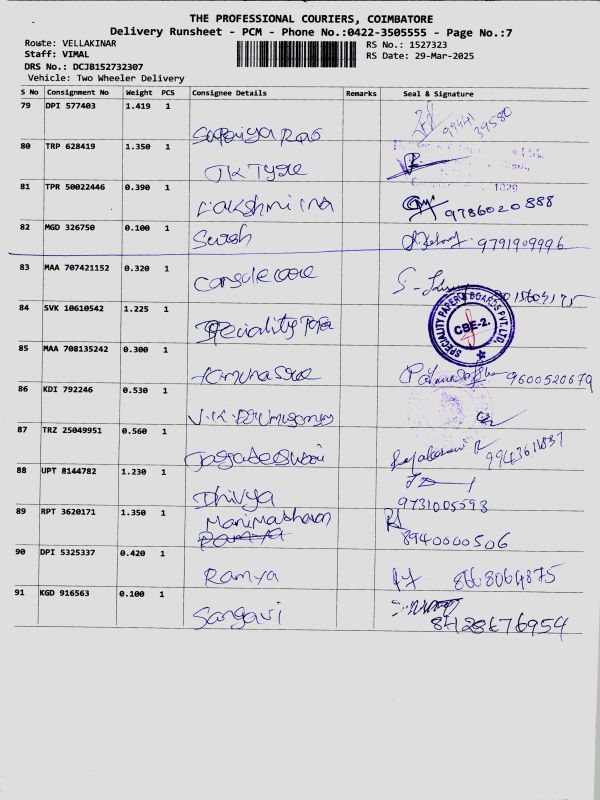 THE PROFESSIONAL COURIERS, COIMBATORE
Delivery Runsheet - PCM - Phone No.:0422-3505555 - Page No.:7
Route: VELLAKINAR RS No.: 1527323
Staff: VIMAL RS Date: 29-Mar-2025
DRS No.: DCJB152732307
Vehicle: Two Wheeler Delivery
S No Consignment No Weight PCS Consignee Details Remarks Seal & Signature
79 DPI 577403 1.419 1 99441 39580
80 TRP 628419 1.350 1 JK Tyre
81 TPR 50022446 0.390 1 Lakshmi 9786020888
82 MGD 326750 0.100 1 9791909996
83 MAA 707421152 0.320 1
84 SVK 10610542 1.225 1 Speciality Paper SPECIALITY PAPER & BOARDS PVT. LTD. CBE-2.
85 MAA 708135242 0.300 1 9600520679
86 KDI 792246 0.530 1
87 TRZ 25049951 0.560 1
88 UPT 8144782 1.230 1 Dhivya 9731005598
89 RPT 3620171 1.350 1 Manimatharan
Ramya 8940000506
90 DPI 5325337 0.420 1 Ramya 8668064875
91 KGD 916563 0.100 1 Sangavi 8428676954